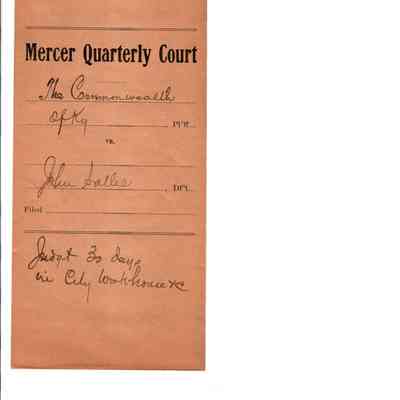 Mercer Quarterly Court
The Commonwealth
of Ky , PPff.
vs.
John Sallee , DFt.
Filed
Judgt 30 days
in City Workhouse &c